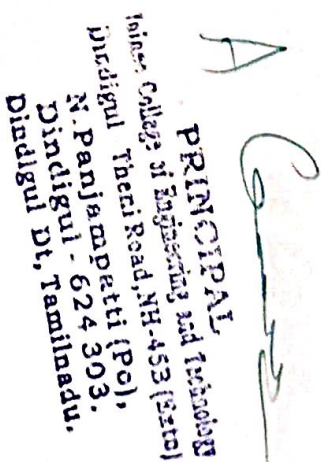 A
PRINCIPAL
College of Engineering and Technology
Dindigul Theni Road, NH-45B (Extn)
N. Panjampatti (Po),
Dindigul - 624 303.
Dindigul Dt, Tamilnadu.